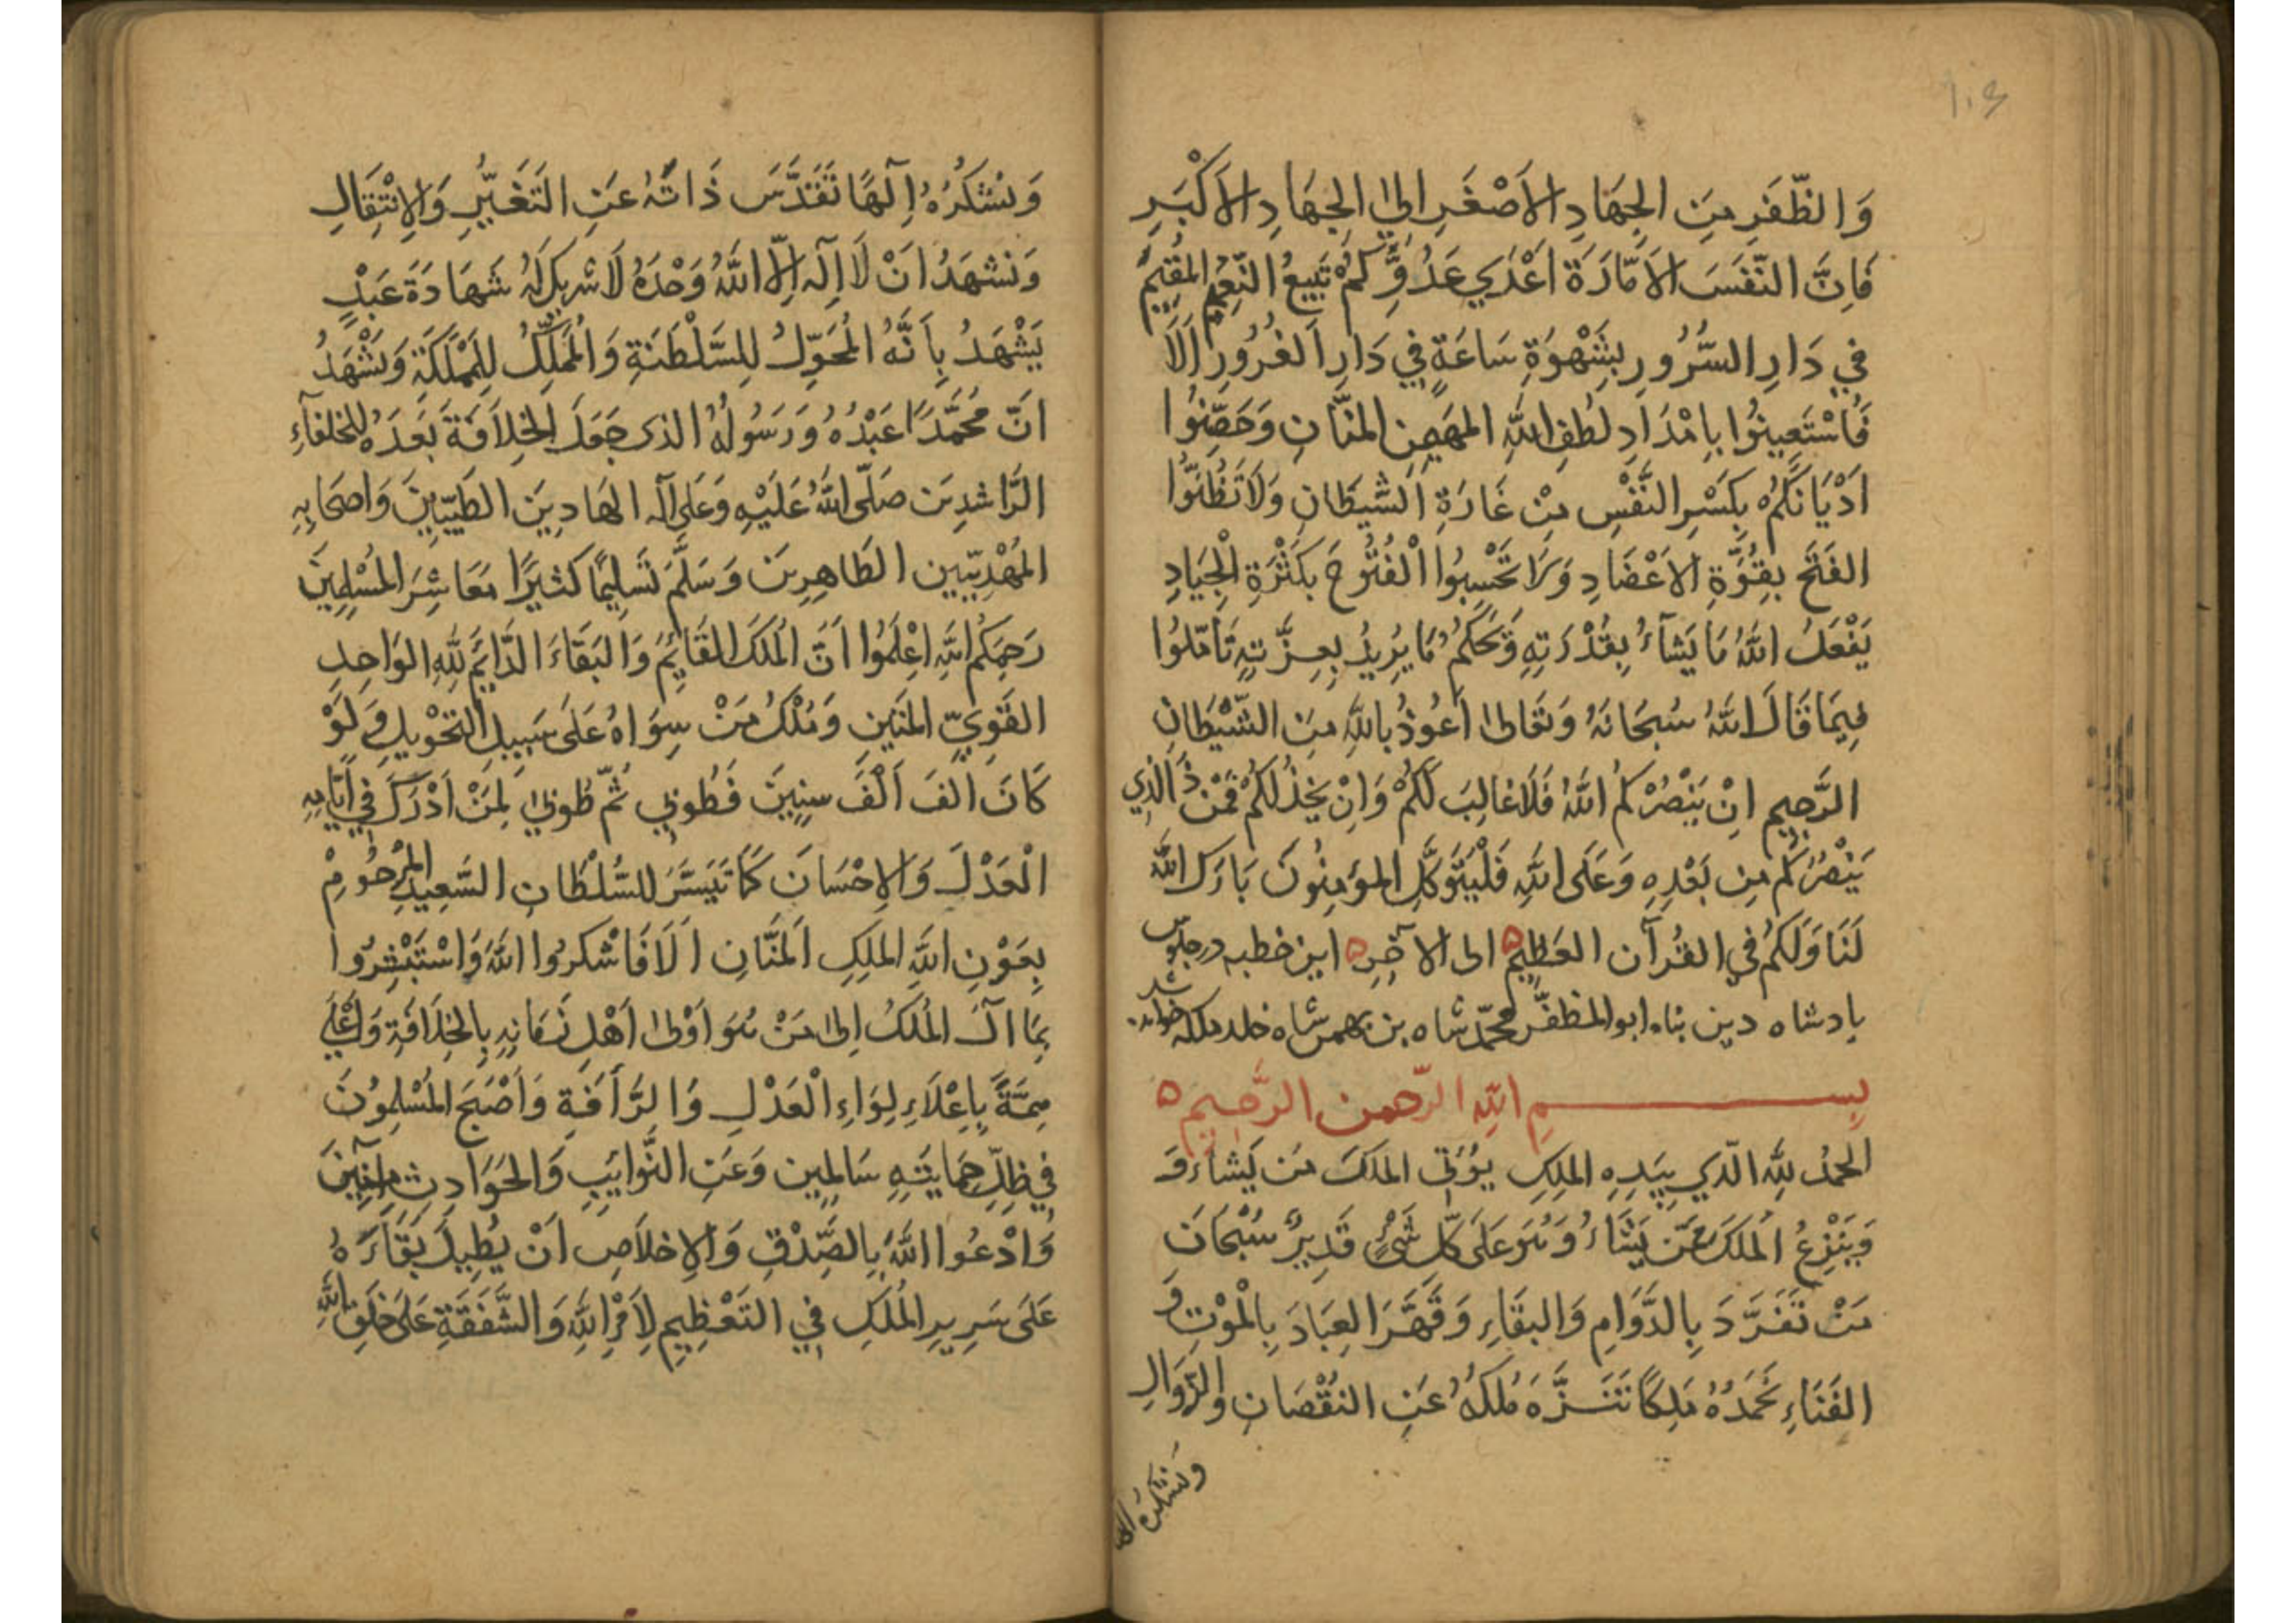 ١٠٤
وَالظَّفَرِ مِنَ الجِهَادِ الاَصْغَرِ اِلىٰ الجِهَادِ الاَكْبَرِ
فَاِنَّ النَّفْسَ الاَمَّارَةَ اَعْدَي عَدُوٍّ لَكُمْ تَبِيعُ النَّعِيمَ المُقِيمَ
فِي دَارِ السُّرُورِ بِشَهْوَةِ سَاعَةٍ فِي دَارِ الغُرُورِ اَلَا
فَاسْتَعِينُوا بِاِمْدَادِ لُطْفِ اللهِ المهَيمِنِ المنَّانِ وَحَصِّنُوا
اَدْيَانَكُمْ بِكَسْرِ النَّفْسِ مِنْ غَارَةِ الشَّيطَانِ وَلَا تَظُنُّوا
الفَتْحَ بِقُوَّةِ الاَعْضَادِ وَلَا تَحْسِبُوا الْفُتُوحَ بِكَثْرَةِ الْجِيَادِ
يَفْعَلُ اللهُ مَا يَشَآءُ بِقُدْرَتِهِ وَيَحْكُمُ مَا يُرِيدُ بِعِزَّتِهِ تَأَمَّلُوا
فِيمَا قَالَ اللهُ سُبحَانَهُ وَتَعَالىٰ اَعُوذُ بِاللهِ مِنَ الشَّيْطَانِ
الرَّجِيمِ اِنْ يَنْصُرْكُمُ اللهُ فَلَا غَالِبَ لَكُمْ وَاِنْ يَخْذُلْكُمْ فَمَنْ ذَا الَّذِي
يَنْصُرُكُمْ مِن بَعْدِهِ وَعَلَى اللهِ فَلْيَتَوَكَّلِ المؤمِنُونَ بَارَكَ اللهُ
لَنَا وَلَكُمْ فِي القُرآنِ العَظِيمِ ٥ الى الآخِرِ ٥ اين خطبه در جلوس
بادشاه دين پناه ابو المظفّر محمّد شاه بن بهمن شاه خلد ملكه خوانده شد
بِسـمِ اللهِ الرّحمنِ الرَّحِيمِ ٥
الحَمْدُ لِلّهِ الّذِي بِيَدِهِ المُلكِ يُؤْتِي المُلكَ مَن يَشَاءُ وَ
وَيَنْزِعُ المُلكَ مِمَّن يَشَاءُ وَهُوَ عَلَى كُلِّ شَيْءٍ قَدِيرٌ سُبْحَانَ
مَنْ تَفَرَّدَ بِالدَّوَامِ وَالبَقَاءِ وَقَهَّرَ العِبَادَ بِالْمَوْتِ وَ
الفَنَاءِ نَحْمَدُهُ مَلِكًا تَنَزَّهَ مُلكُهُ عَنِ النُقْصَانِ وَالزَّوَالِ
وَنَشكُرُهُ اِلهًا
وَنَشكُرُهُ اِلٓهًا تَقَدَّسَ ذَاتُهُ عَنِ التَغَيُّرِ وَالاِنْتِقَالِ
وَنَشْهَدُ اَنْ لَا اِلٓهَ اِلَّا اللهُ وَحْدَهُ لَا شَرِيكَ لَهُ شَهَادَةَ عَبْدٍ
يَشْهَدُ بِاَنَّهُ المُحَوِّلُ لِلسَّلْطَنَةِ وَالمُمَلِّكُ لِلمَمْلَكَةِ وَنَشْهَدُ
اَنَّ مُحَمَّدًا عَبْدُهُ وَرَسُولُهُ الذى جَعَلَ الخِلَافَةَ بَعْدَهُ للخلفآءِ
الرَّاشِدِينَ صَلَّى اللهُ عَلَيْهِ وَعَلى آلِهِ الهَادِيَن الطَيّبِينَ وَاصحَابِهِ
المَهْدِيّيِين الطَاهِرِينَ وَسَلَّمَ تَسلِيمًا كَثيرًا مَعَاشِرَ المُسْلِمِينَ
رَحِمَكُم اللهِ اِعْلَمُوا اَنَّ المُلكَ القَائِمَ وَالبَقَاءَ الدَّايِمَ لِلّهِ الوَاحِدِ
القَوِيِّ المَتِينِ وَمُلْكُ مَنْ سِوَاهُ عَلَى سَبِيلِ التَحْوِيلِ وَلَوْ
كَانَ الفَ اَلْفَ سِنِينَ فَطُوبٰي ثُمّ طُوبٰي لِمَنْ اَدْرَكَ فِي اَيَّامِهِ
الْعَدْلَ وَالاِحْسَانَ كَمَا تَيَسَّرَ لِلسُّلْطَانِ السَّعِيدِ المَرْحُومِ
بِعَوْنِ اللهِ المَلِكِ اَلمَنَّانِ اَلَا فَاشْكُرُوا اللهَ وَاسْتَبْشِرُوا
بِمَا آلَ المُلكُ اِلىٰ مَنْ هُوَ اَوْلىٰ اَهْلِ زَمَانِهِ بِالخِلَافَةِ وَاَعْلَى
هِمَّةً بِاِعْلَاءِ لِوَاءِ الْعَدْلِ وَالرَّأفَةِ وَاَصْبَحَ المُسْلِمُونَ
فِي ظِلِّ حِمَايَتِهِ سَالِمِين وَعَنِ النَّوَايِبِ وَالحَوَادِثِ آمِنِينَ
وَادْعُوا اللهَ بِالصِّدْقِ وَالاِخْلَاصِ اَنْ يُطِيلَ بَقَاءَهُ
عَلَى سَرِيرِ المُلكِ فِي التَعْظِيمِ لِاَمْرِ اللهِ وَالشَّفَقَةِ عَلَى خَلقِ اللهِ